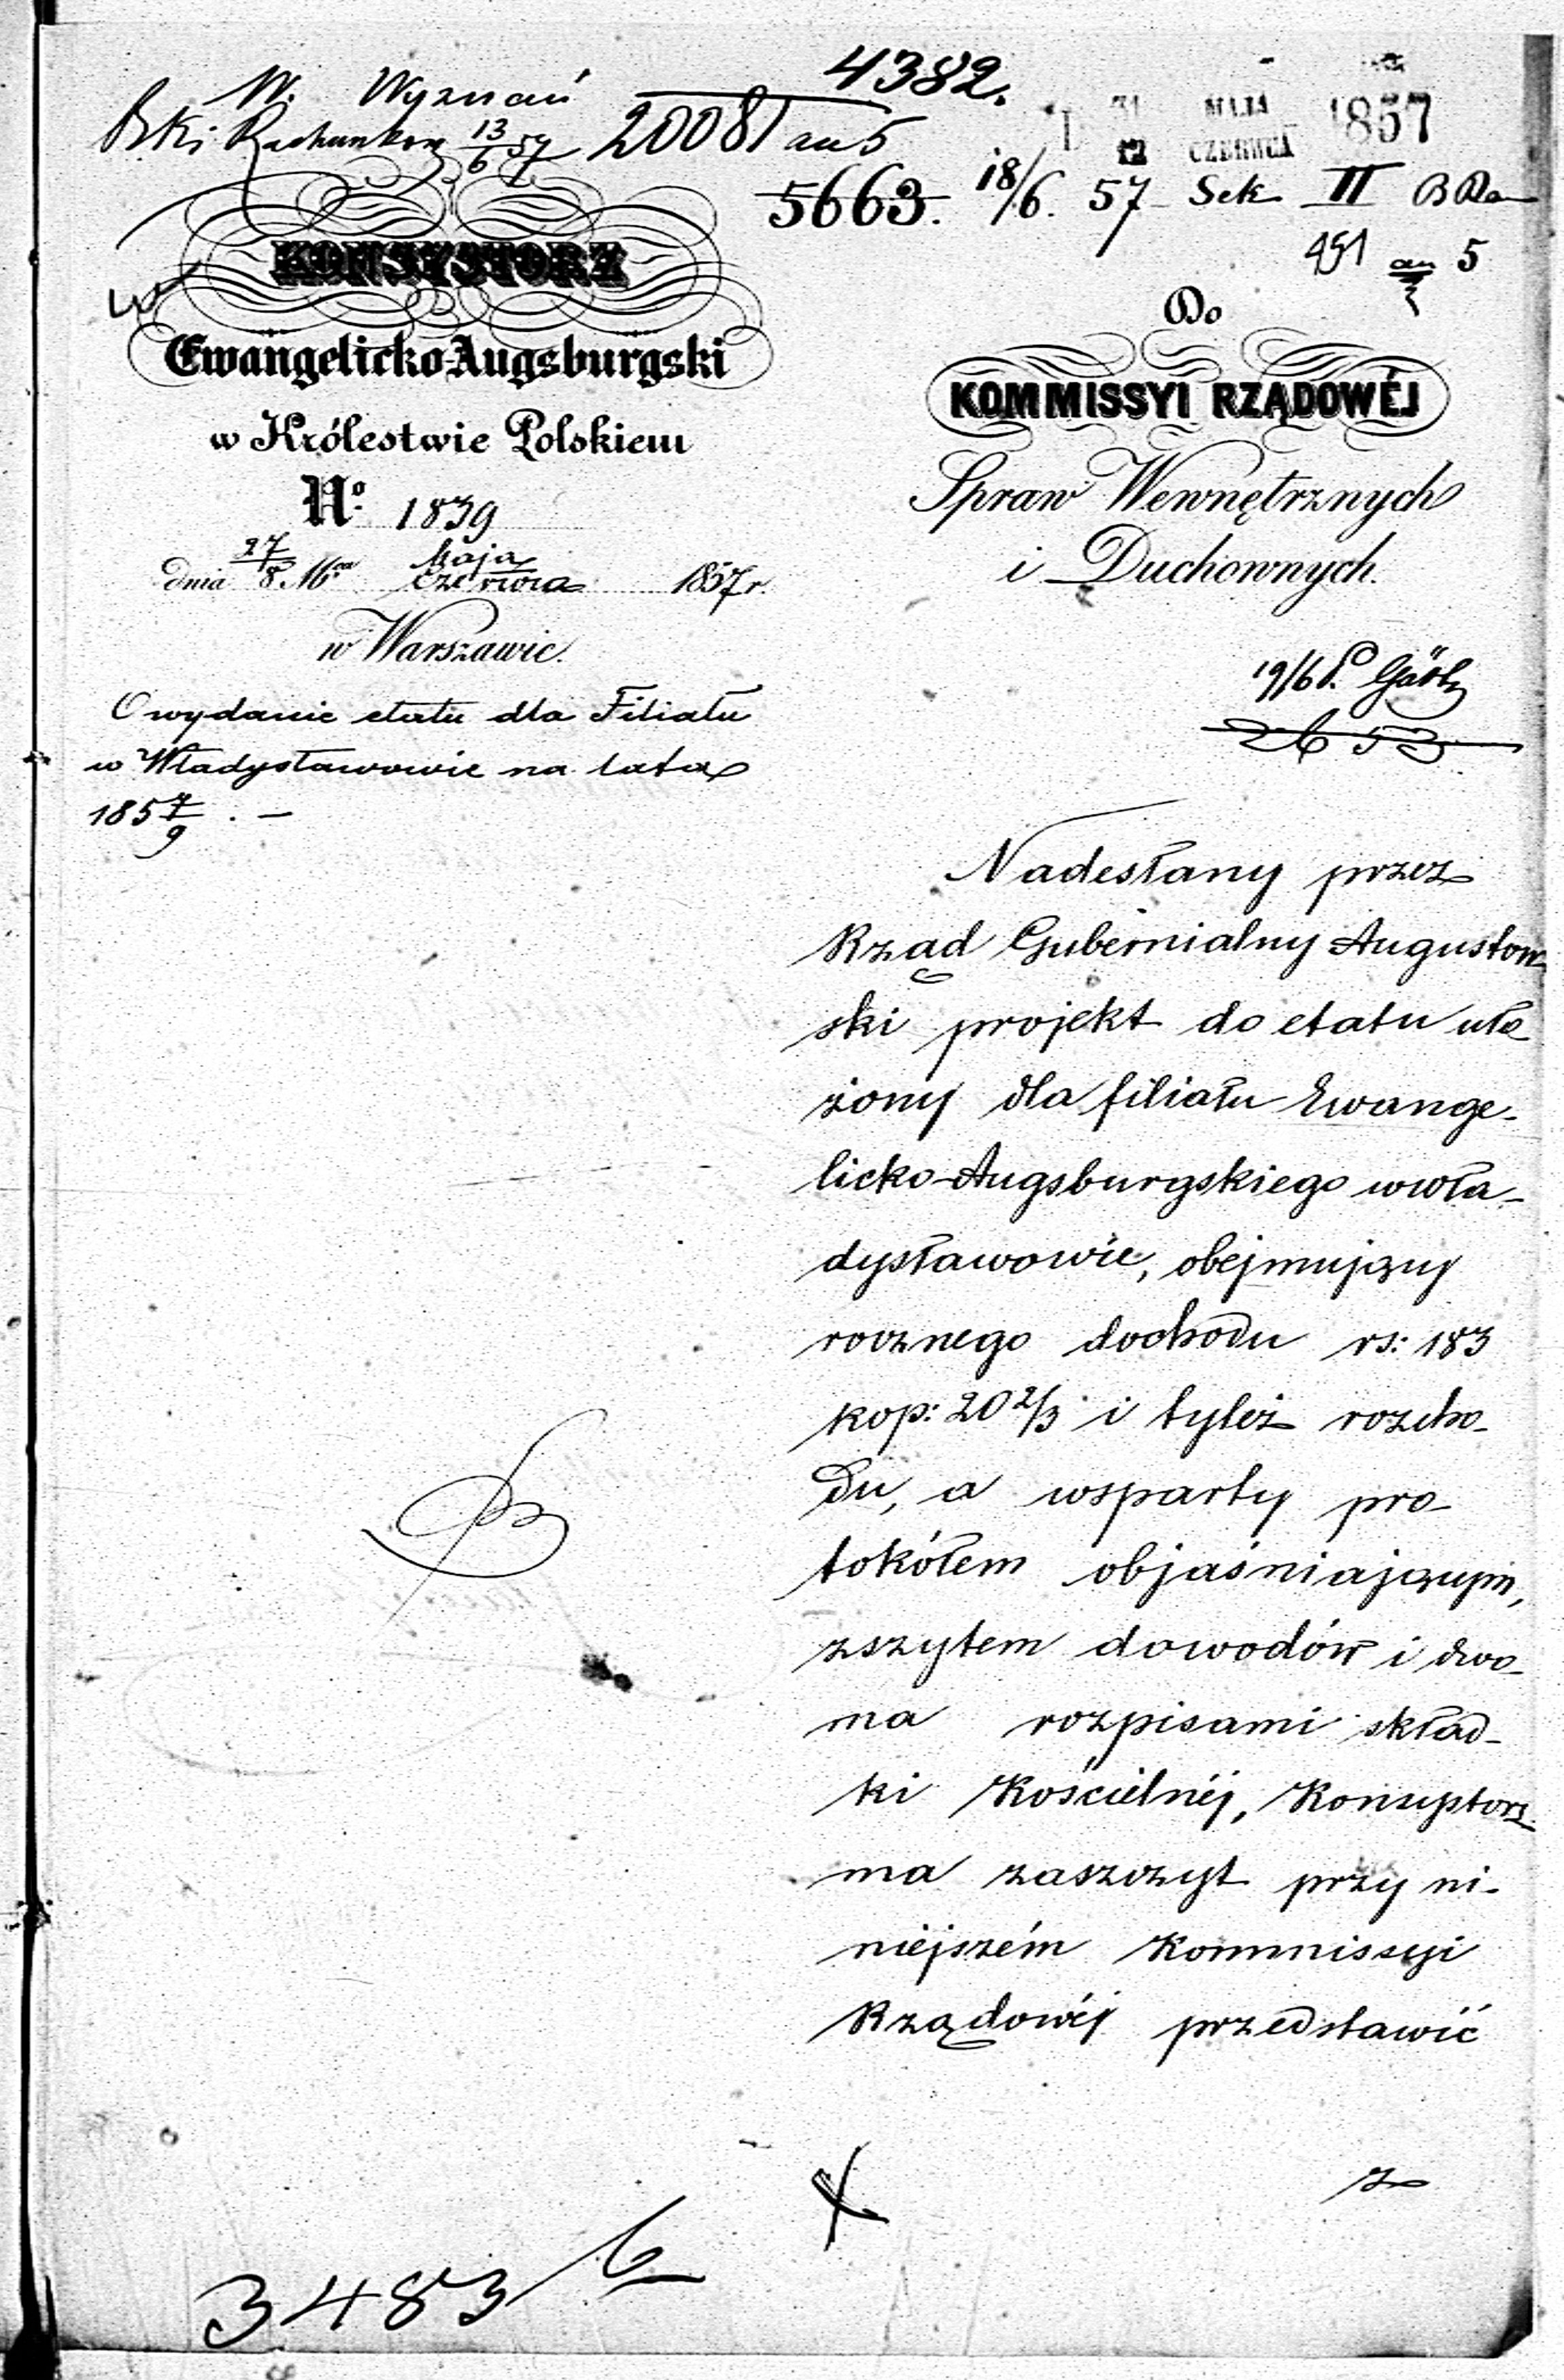 W. Wyznań
4382.
13/6 57
20081 an 5
31 MAJA 1857
12 CZERWCA
5663. 18/6. 57 Sek II
491 an 5
KONSYSTORZ
Ewangelicko-Augsburgski
w Królestwie Polskiem
No. 1839
dnia 27/8 Mca Maja/Czerwca 1857 r.
w Warszawie.
O wydanie etatu dla Filiału
w Władysławowie na lata
185 7/9 . —
Do
KOMMISSYI RZĄDOWÉJ
Spraw Wewnętrznych
i Duchownych.
19/6 P.
Nadesłany przez
Rząd Gubernialny Augustow-
ski projekt do etatu uło
żony dla filiału Ewange-
licko-Augsburgskiego wWła-
dysławowie, obejmujący
rocznego dochodu rs: 183
kop: 20 2/3 i tyleż rozcho-
du, a wsparty pro-
tokółem objaśniającym,
zszytem dowodów i dwo-
ma rozpisami skład-
ki Kościelnéj, Konsystorz
ma zaszczyt przy ni-
niejszém Kommissyi
Rządowéj przedstawić
z
3483